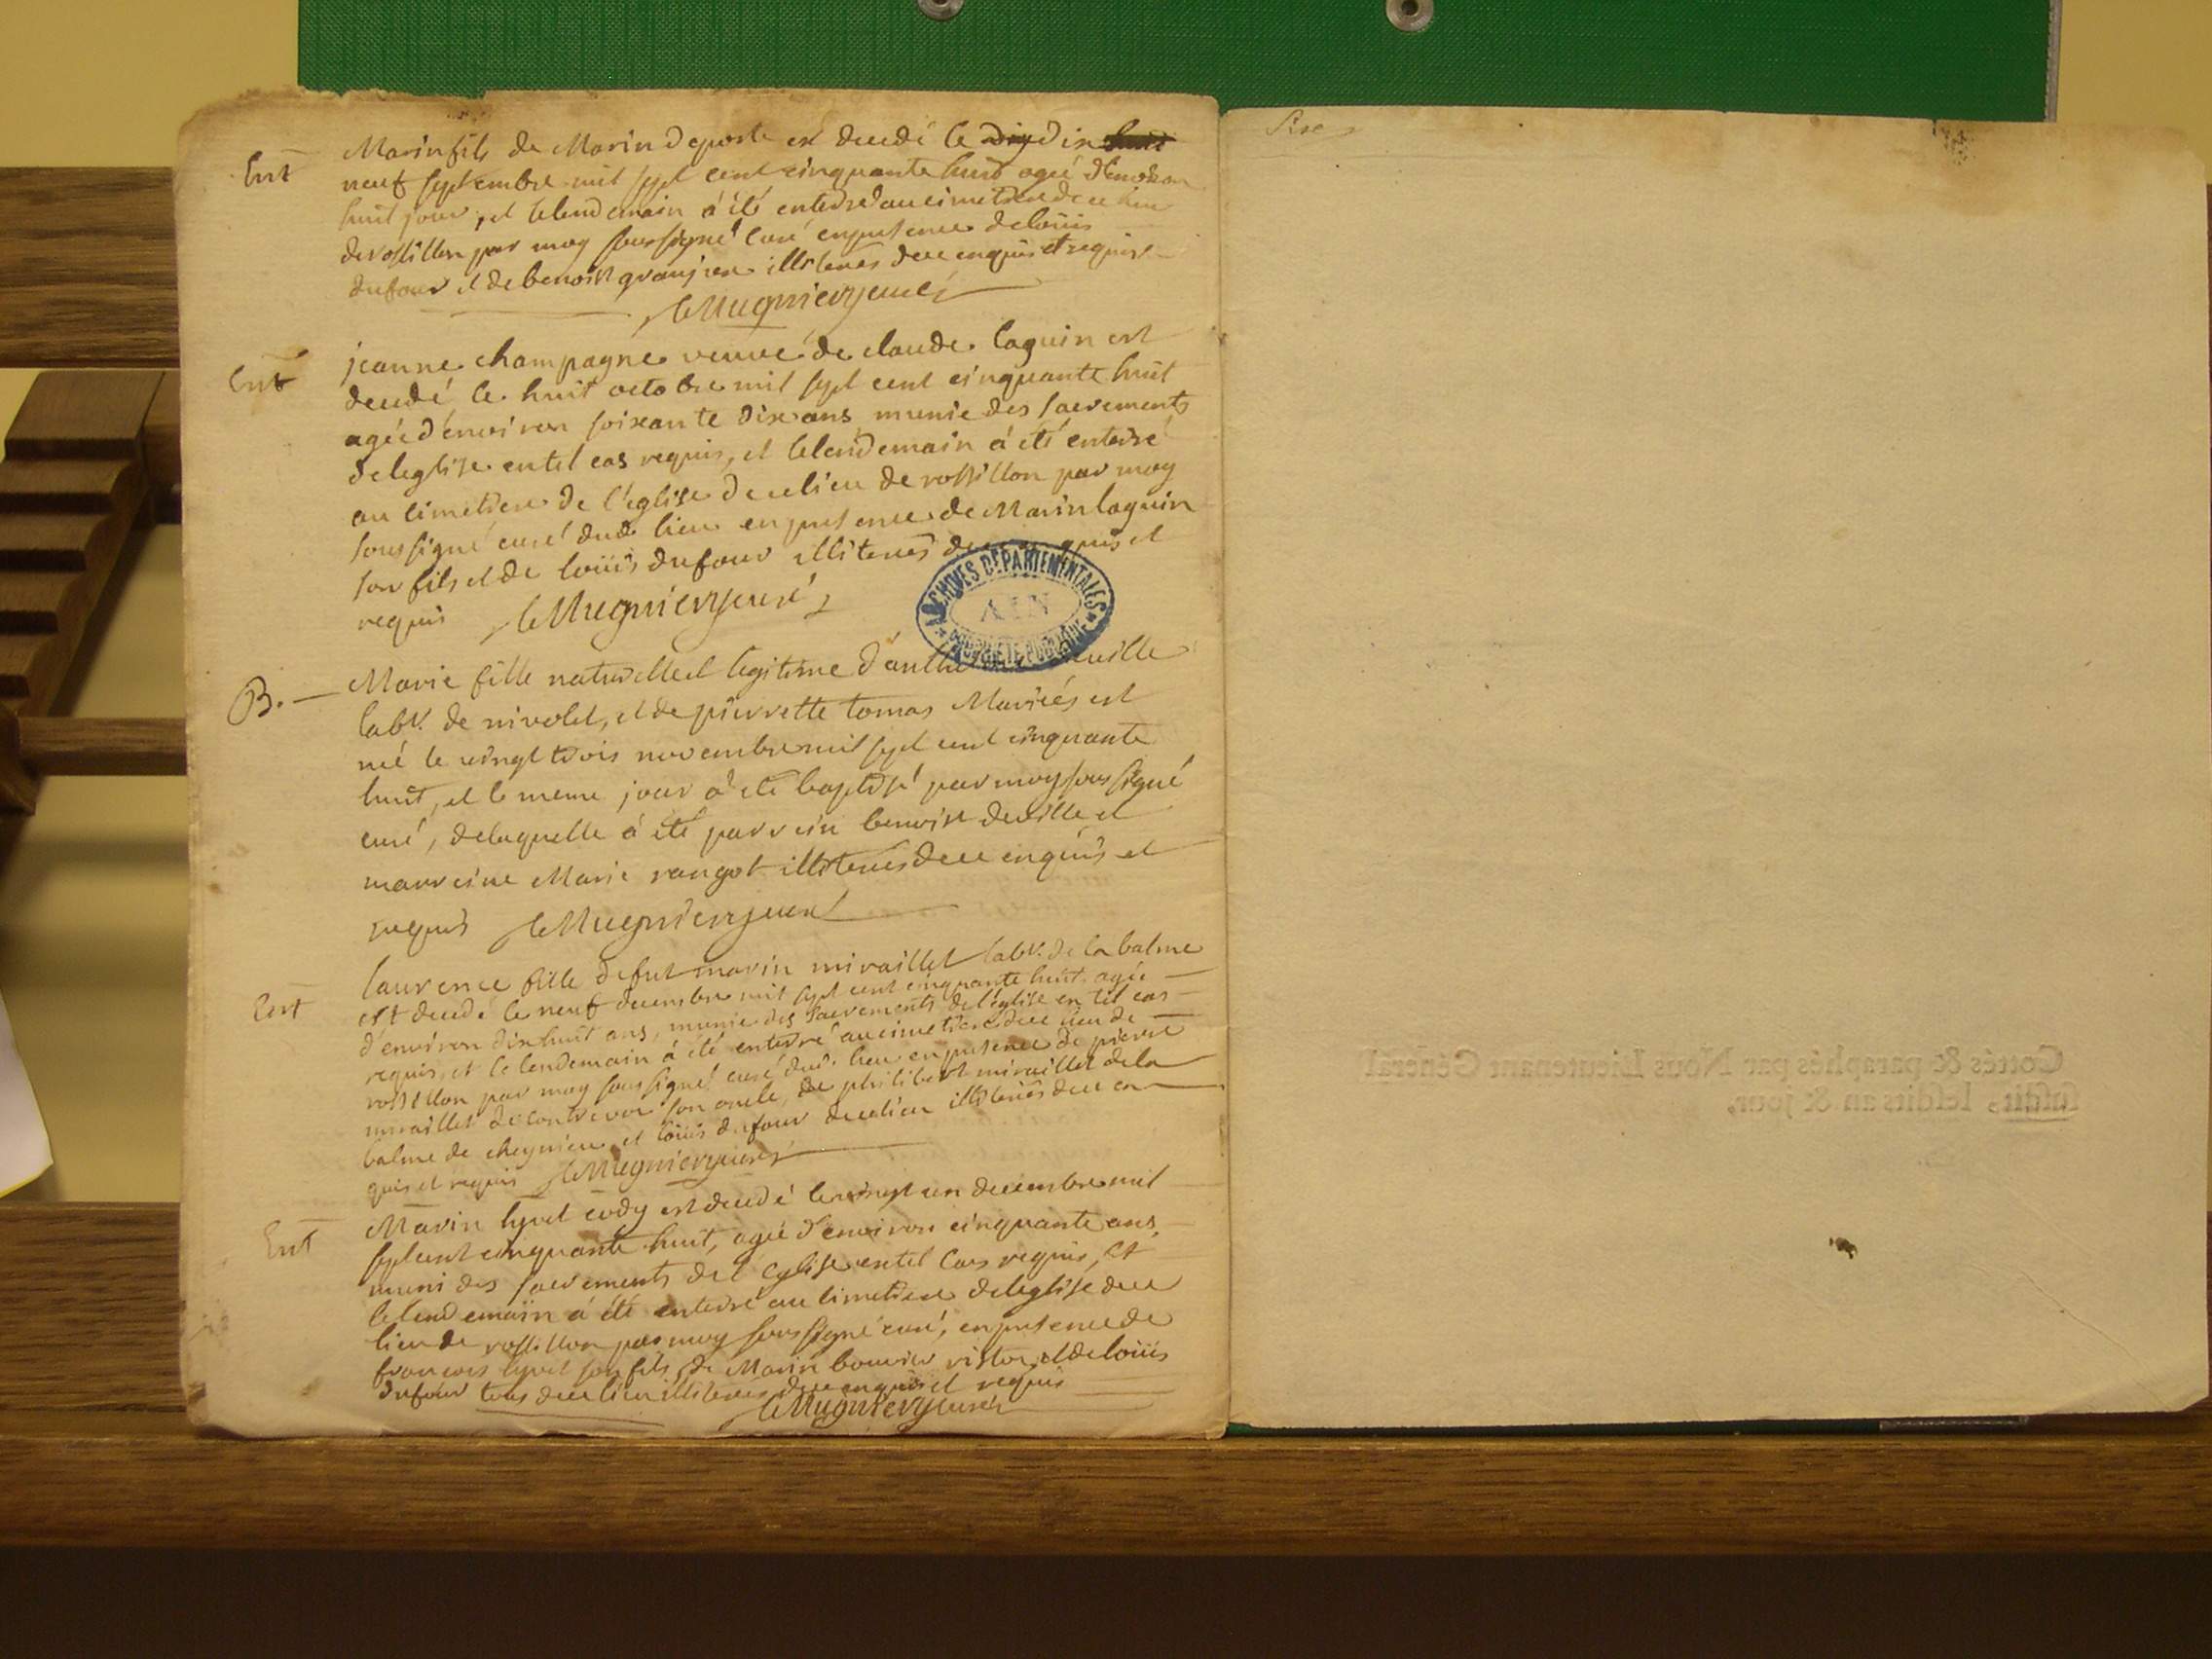 Ent
Marin fils de Marin Deporte est decedé le dix dix huit
neuf septembre mil sept cent cinquante huit agé d'environ
huit jour, et lelendemain à été enterré au cimetiere de ce lieu
de rossillon par moy soussigné curé enpresence de loüis
dufour et de benoist granjean illiterés de ce enquis et requis
leMugnier curé
Ent
jeanne champagne veuve de claude laguin est
decedé le huit octobre mil sept cent cinquante huit
agée d'environ soixante dix ans munie des sacrements
deleglise entel cas requis, et lelendemain à été enterré
au cimetiere de l'eglise de ce lieu de rossillon par moy
soussigné curé dud lieu enpresence de Marin laguin
son fils et de loüis dufour illiterés de ce enquis et
requis leMugnier curé
ARCHIVES DÉPARTEMENTALES
AIN
PROPRIÉTÉ PUBLIQUE
B.
Marie fille naturelle et legitime d'anthe
labr. de nivolet, et de pierrette tomas Mariés est
né le vingt trois novembre mil sept cent cinquante
huit, et le meme jour à été baptisé par moy soussigné
curé, delaquelle à été parrein benoist deville et
marreine Marie rangot illiterés de ce enquis et
requis leMugnier curé
Ent
laurence fille defut marin miraillet labr. de la balme
est decedé le neuf decembre mil sept cent cinquante huit agée
d'environ dix huit ans, munie des sacrements de l'église en tel cas
requis, et le lendemain à été enterré au cimetiere de ce lieu de
rossillon par moy soussigné curé dud. lieu enpresence de pierre
miraillet de contrevor son oncle, de philibert miraillet dela
balme de cheynieu et loüis dufour de ce lieu illiterés de ce en
quis et requis leMugnier curé
Ent
Marin lyvet cody est decedé le vingt un decembre mil
sept cent cinquante huit, agé d'environ cinquante ans,
muni des sacrements de l'eglise entel cas requis, et
lelendemain à été enterré au cimetiere deleglise de ce
lieu de rossillon par moy soussigné curé, enpresence de
francois lyvet son fils, de Marin bouvier vistor, et de loüis
dufour tous de ce lieu illiterés de ce enquis et requis
leMugnier curé
Cottés & paraphés par Nous Lieutenant Général
susdit, lesdits an & jour,